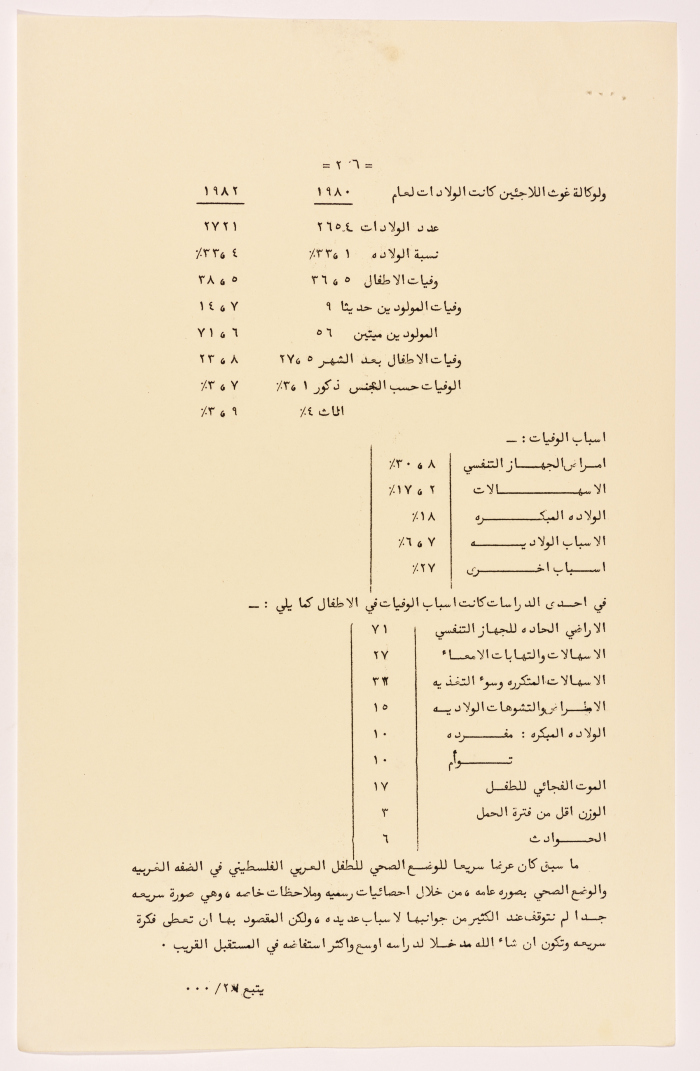 = ٢٦ =
ولوكالة غوث اللاجئين كانت الولادات لعام ١٩٨٠ ١٩٨٢
عدد الولادات ٢٦٥٤ ٢٧٢١
نسبة الولاده ١ و٣٣٪ ٤ و٣٣٪
وفيات الاطفال ٥ و ٣٦ ٥ و ٣٨
وفيات المولودين حديثا ٩ ٧ و ١٤
المولودين ميتين ٥٦ ٦ و ٧١
وفيات الاطفال بعد الشهر ٥ و٢٧ ٨ و ٢٣
الوفيات حسب الجنس ذكور ١ و٣٪ ٧ و ٣٪
اناث ٤٪ ٩ و ٣٪
اسباب الوفيات : ــ
امراض الجهاز التنفسي ٨ و ٣٠٪
الاسهالات ٢ و ١٧٪
الولاده المبكره ١٨٪
الاسباب الولاديه ٧ و ٦٪
اسباب اخرى ٢٧٪
في احدى الدراسات كانت اسباب الوفيات في الاطفال كما يلي : ــ
الاراضي الحاده للجهاز التنفسي ٧١
الاسهالات والتهابات الامعاء ٢٧
الاسهالات المتكرره وسوء التغذيه
والتشوهات الولاديه ١٥
الولاده المبكره : مفرده ١٠
توأم ١٠
الموت الفجائي للطفل ١٧
الوزن اقل من فترة الحمل ٣
الحوادث ٦
ما سبق كان عرضا سريعا للوضع الصحي للطفل العربي الفلسطيني في الضفه الغربيه
والوضع الصحي بصوره عامه ، من خلال احصائيات رسميه وملاحظات خاصه ، وهي صورة سريعه
جدا لم نتوقف عند الكثير من جوانبها لاسباب عديده ، ولكن المقصود بها ان تعطى فكرة
سريعه وتكون ان شاء الله مدخلا لدراسه اوسع واكثر استفاضه في المستقبل القريب ٠
يتبع /٠٠٠